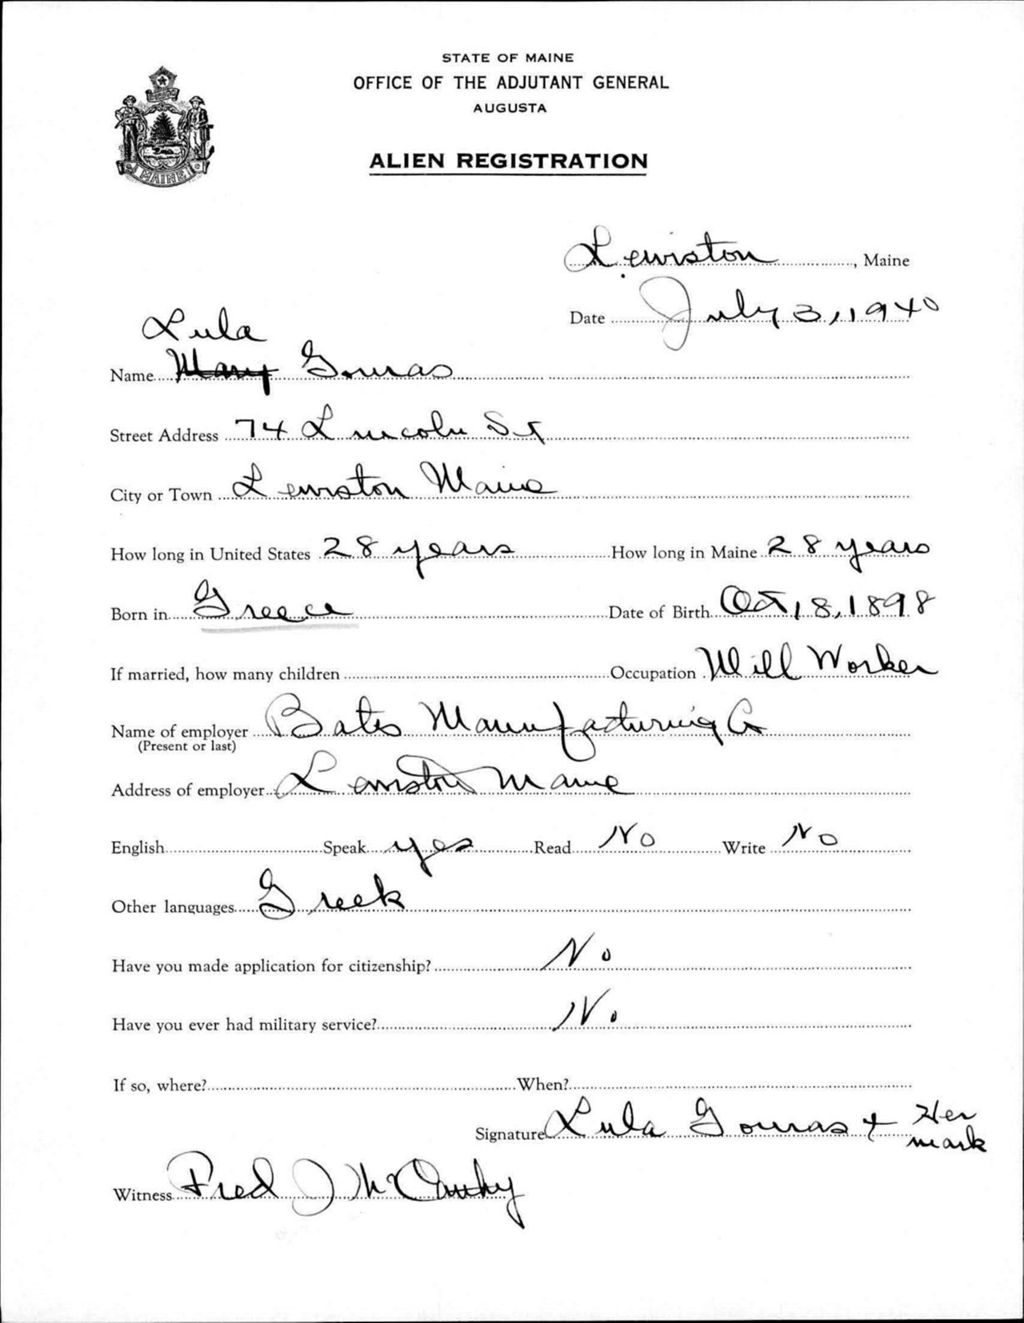 STATE OF MAINE
OFFICE OF THE ADJUTANT GENERAL
AUGUSTA
MAINE
ALIEN REGISTRATION
Lewiston, Maine
Date July 3, 1940
Lula
Name Mary Gouras
Street Address 74 Lincoln St
City or Town Lewiston Maine
How long in United States 28 years How long in Maine 28 years
Born in Greece Date of Birth Oct 18, 1898
If married, how many children Occupation Mill Worker
Name of employer Bates Manufacturing Co
(Present or last)
Address of employer Lewiston Maine
English Speak yes Read No Write No
Other languages Greek
Have you made application for citizenship? No
Have you ever had military service? No
If so, where? When?
Signature Lula Gouras + Her
mark
Witness Fred J McCarthy